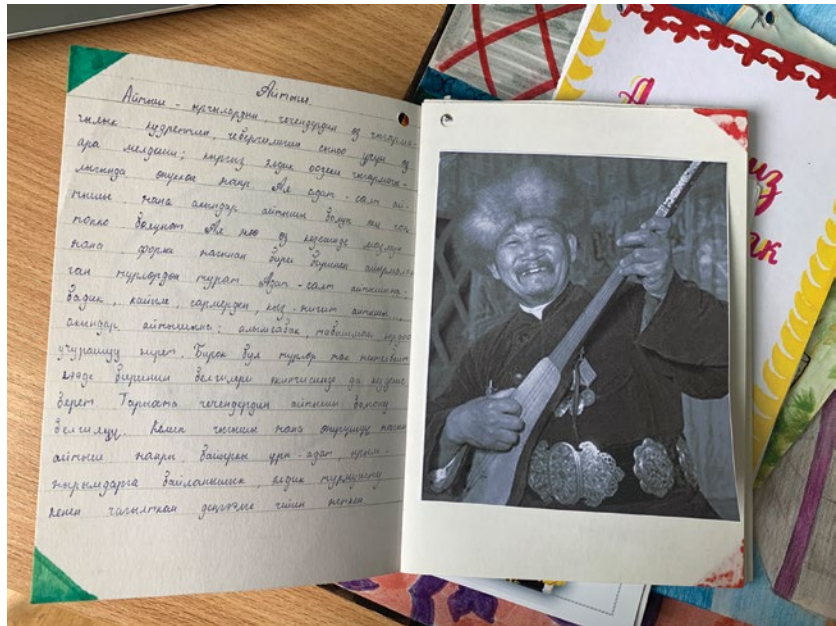 Айтыш.
Айтыш - ырчылардын, чечендердин өз чыгарма-
чылык кудретин, чеберчилигин сыноо үчүн өз
ара мелдеши; кыргыз элдик оозеки чыгармачы-
лыгында өнүккөн жанр. Ал адат-салт ай-
тышы жана акындар айтышы болуп эки
бөлүнөт. Ал өз кезегинде мазмун
жана форма жактан бири биринен айырмалан-
ган түрлөрдөн турат. Адат-салт айтышына:
бадик, кайым, сармерден, кыз-жигит айтышы,
акындар айтышына: алымсабак, табышмак, кордоо
учурашуу кирет. Бирок бул түрлөр так
кээде биринин белгилери экинчисинде да кездеше
берет. Тарыхта чечендердин айтышы болгону
белгилүү. Келип чыгышы жана өнүгүшү жактан
айтыш жанры байыркы үрп-адат, ырым-
жырымдарга байланышып, элдик турмушту
кеңири чагылткан деңгээлге чейин жеткен.